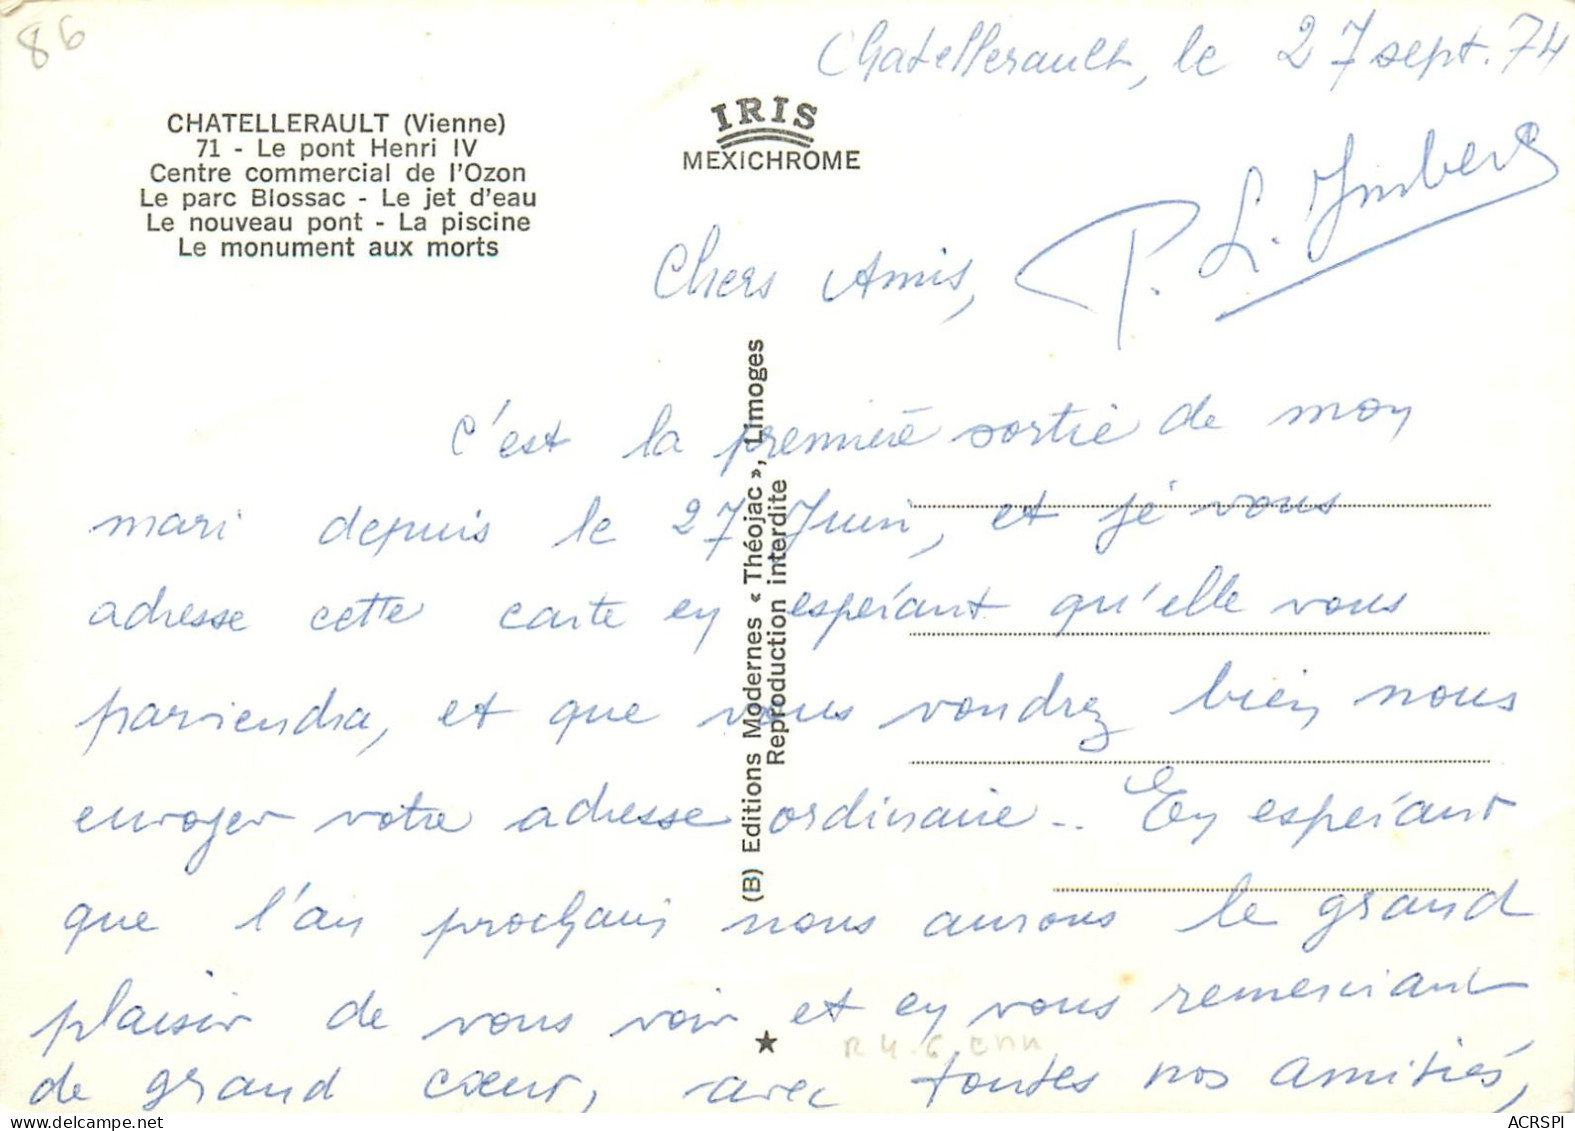 86
Chatellerault, le 27 sept. 74
CHATELLERAULT (Vienne)
71 - Le pont Henri IV
Centre commercial de l'Ozon
Le parc Blossac - Le jet d'eau
Le nouveau pont - La piscine
Le monument aux morts
IRIS
MEXICHROME
P. L. Imbert
Chers Amis,
C'est la première sortie de mon
mari depuis le 27 Juin, et je vous
adresse cette carte en espérant qu'elle vous
parviendra, et que vous voudrez bien nous
envoyer votre adresse ordinaire .. En espérant
que l'an prochain nous aurons le grand
plaisir de vous voir et en vous remerciant
de grand cœur, avec toutes nos amitiés,
(B) Editions Modernes « Théojac », Limoges
Reproduction interdite
ACRSPI